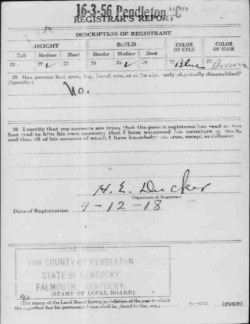 16-3-56 Pendleton "C"
REGISTRAR'S REPORT
DESCRIPTION OF REGISTRANT
HEIGHT BUILD COLOR OF EYES COLOR OF HAIR
Tall Medium Short Slender Medium Stout
21 22 23 24 25 26 27 Blue 28 Brown
29 Has person lost arm, leg, hand, eye, or is he obviously physically disqualified?
(Specify.)
No.
30 I certify that my answers are true; that the person registered has read or has
had read to him his own answers; that I have witnessed his signature or mark,
and that all of his answers of which I have knowledge are true, except as follows:
H. E. Decker
(Signature of Registrar)
Date of Registration 9-12-18
COUNTY OF PENDLETON
STATE OF KENTUCKY
FALMOUTH, KENTUCKY.
(STAMP OF LOCAL BOARD)
(The stamp of the Local Board having jurisdiction of the area in which
the registrant has his permanent home shall be placed in this box.)
(OVER)